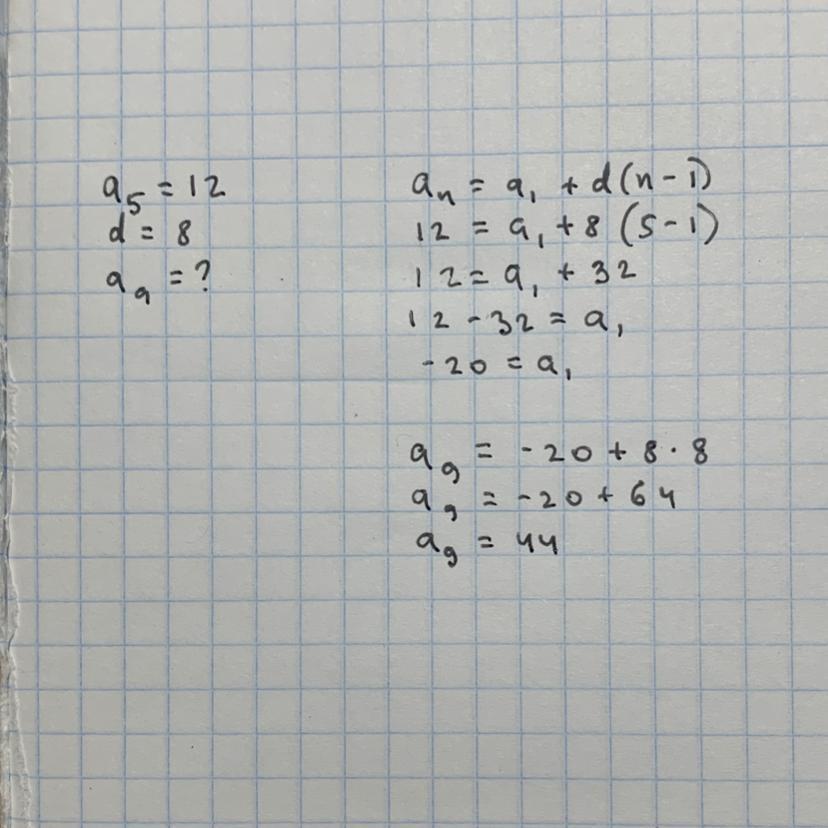 a₅ = 12
d = 8
a₉ = ?
aₙ = a₁ + d(n-1)
12 = a₁ + 8(5-1)
12 = a₁ + 32
12 - 32 = a₁
-20 = a₁
a₉ = -20 + 8·8
a₉ = -20 + 64
a₉ = 44